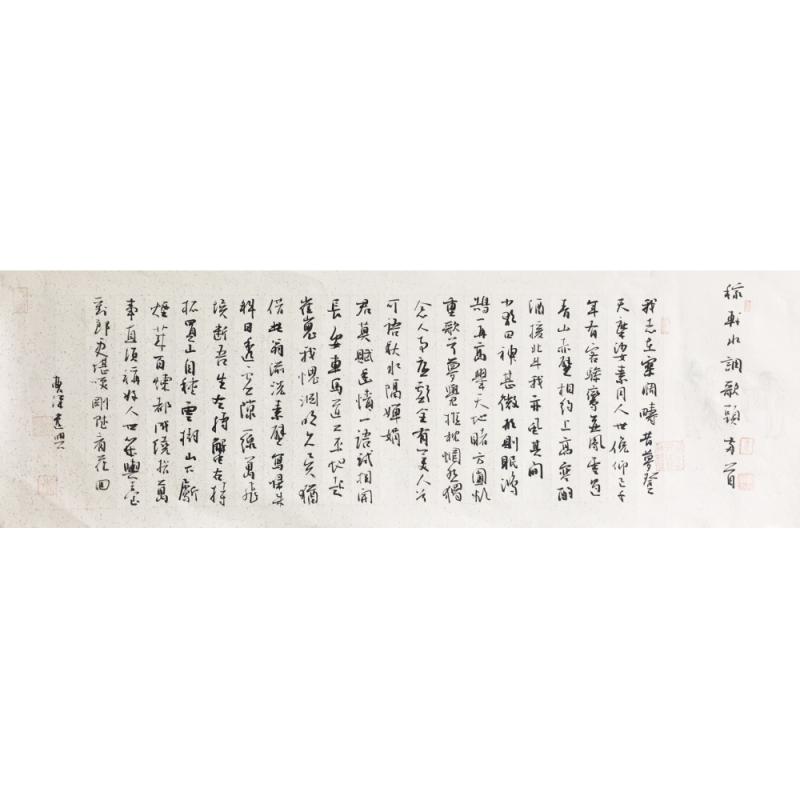 稼軒水調歌頭
我志在寥闊疇昔夢登
天摩娑素月人世俛仰已千
年有客驂鸞並鳳雲遇
青山赤壁相約上高寒酌
酒援北斗我亦虱其間
少歌曰神甚放形則眠鴻
鵠一再高舉天地睹方圓欲
重歌兮夢覺推枕惘然獨
念人事底虧全有美人
可語秋水隔嬋娟
君莫賦幽憤一語試相開
長安車馬道上平地起
崔嵬我愧淵明久矣猶
借此翁湔洗素壁寫歸來
斜日透虛隙一線萬飛
埃斷吾生左持蟹右持
杯買山自種雲樹山下斸
煙萊百煉都成繞指萬
事直須稱好人世幾輿臺
劉郎更堪笑剛賦看花回